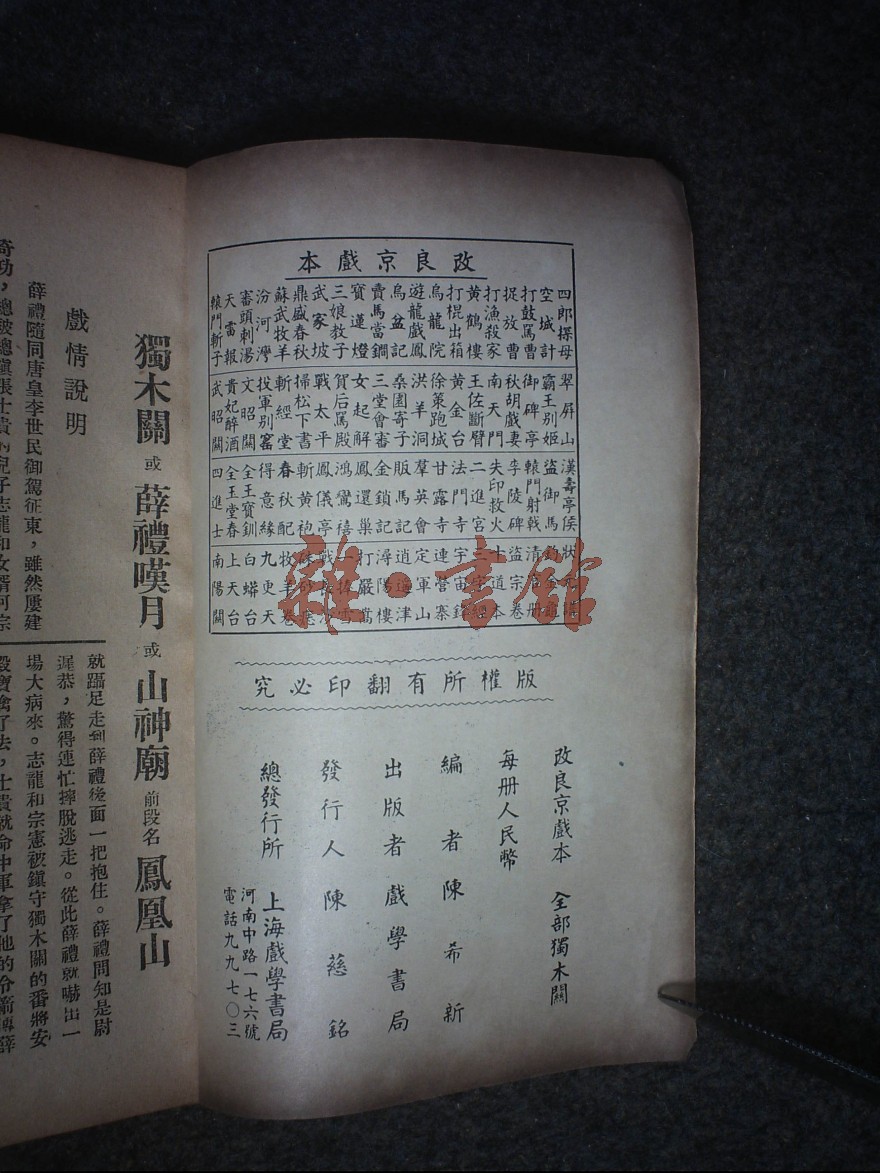 改良京戲本
四郎探母
空城計
打鼓罵曹
捉放曹
打漁殺家
黃鶴樓
打棍出箱
烏龍院
遊龍戲鳳
烏盆記
賣馬當鐧
寶蓮燈
三娘教子
武家坡
鼎盛春秋
蘇武牧羊
汾河灣
審頭刺湯
天雷報
轅門斬子
翠屏山
霸王别姬
御碑亭
秋胡戲妻
南天門
王佐斷臂
黃金台
徐策跑城
洪羊洞
桑園寄子
三堂會審
女起解
賀后罵殿
戰太平
掃松下書
斬經堂
投軍别窰
文昭關
貴妃醉酒
武昭關
漢壽亭侯
盜御馬
轅門射戟
李陵碑
失印救火
二進宮
法門寺
甘露寺
羣英會
販馬記
金鎖記
鳳還巢
鴻鸞禧
鳳儀亭
斬黃袍
春秋配
得意緣
全王寶釧
全玉堂春
四進士
連營寨
定軍山
逍遙津
潯陽樓
打嚴嵩
牧羊卷
九更天
白蟒台
上天台
南陽關
版權所有翻印必究
改良京戲本 全部獨木關
每册人民幣
編者陳希新
出版者戲學書局
發行人陳慈銘
總發行所 上海戲學書局
河南中路一七六號
電話九九七〇三
獨木關 或 薛禮嘆月 或 山神廟 前段名 鳳凰山
戲情說明
薛禮隨同唐皇李世民御駕征東，雖然屢建
奇功，總被總鎮張士貴的兒子志龍和女婿何宗
就躡足走到薛禮後面一把抱住。薛禮問知是尉
遲恭，驚得連忙摔脫逃走。從此薛禮就嚇出一
場大病來。志龍和宗憲被鎮守獨木關的番將安
殿寶擒了去，士貴就命中軍拿了他的令箭傳薛
雜·書館